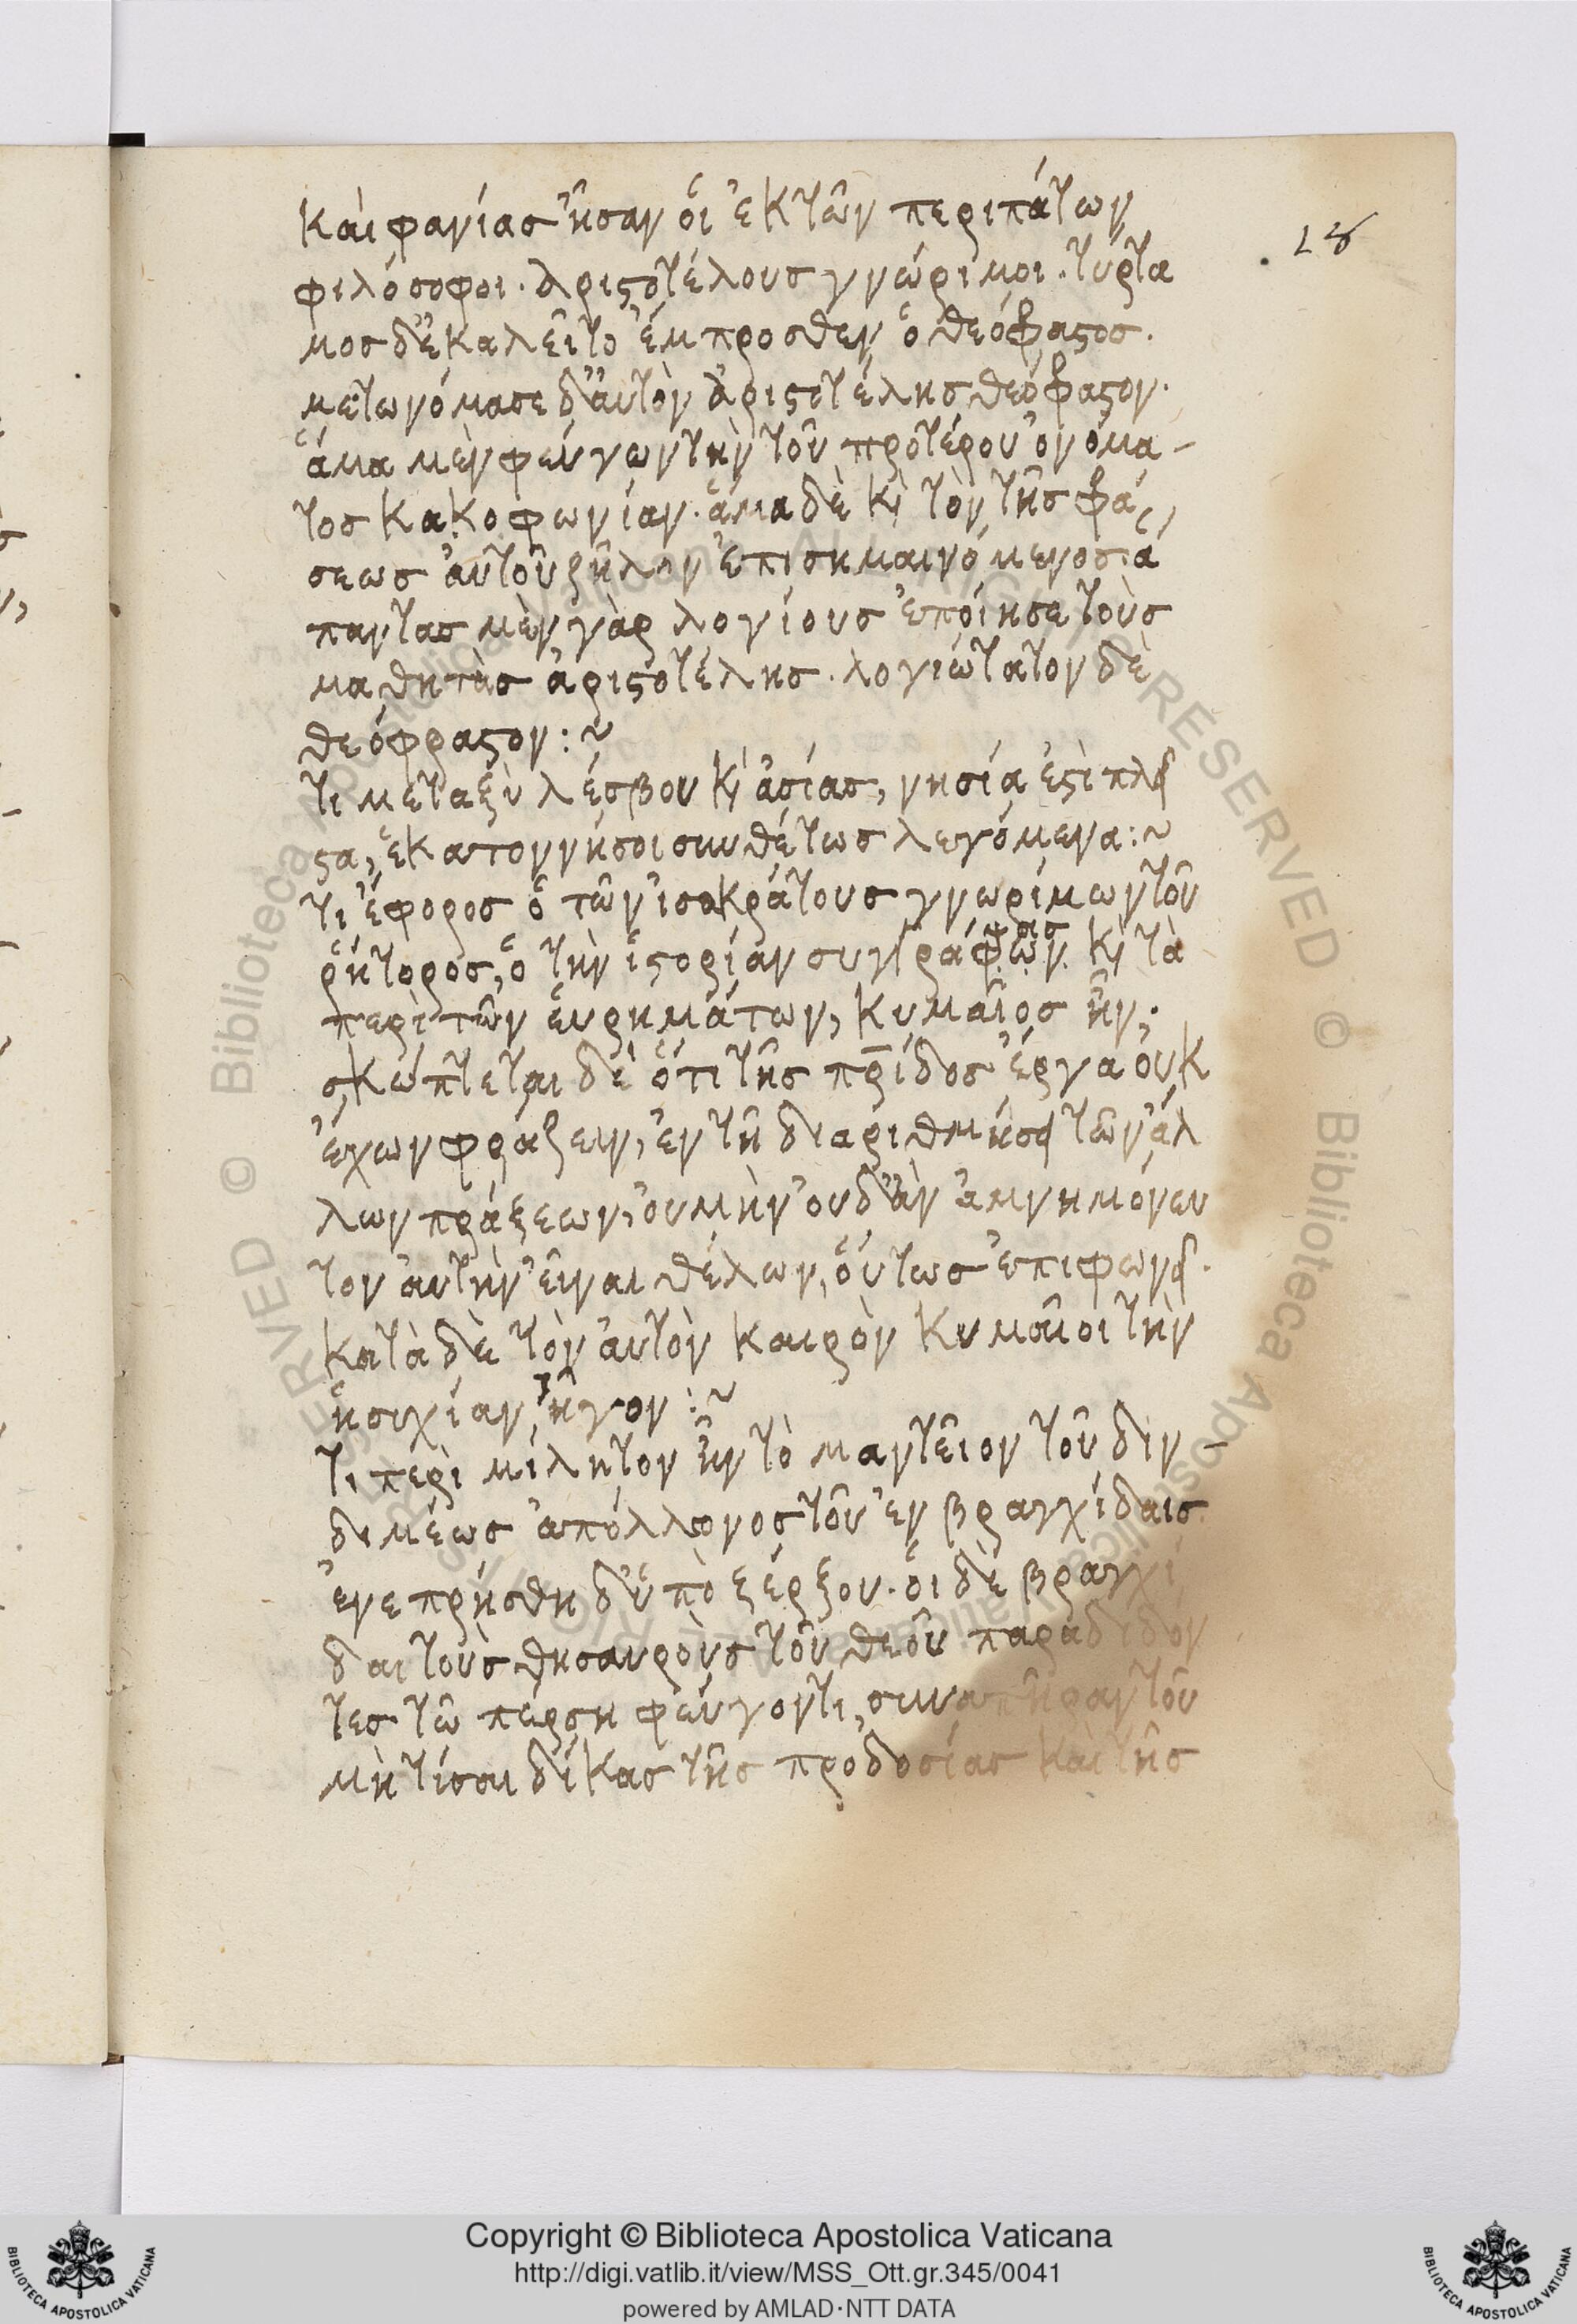 καὶ φανίας ἦσαν οἱ ἐκ τῶν περιπάτων
18
φιλόσοφοι. ἀριστοτέλους γνώριμοι. τύρτα
μος δ' ἐκαλεῖτο ἔμπροσθεν ὁ θεόφραστος.
μετωνόμασε δ' αὐτὸν ἀριστοτέλης θεόφραστον.
ἅμα μὲν φεύγων τὴν τοῦ προτέρου ὀνόμα-
τος κακοφωνίαν. ἅμα δὲ κ τὸν τῆς φρά
σεως αὐτοῦ ζῆλον ἐπισημαινόμενος. ἅ
παντας μὲν γὰρ λογίους ἐποίησε τοὺς
μαθητὰς ἀριστοτέλης. λογιώτατον δὲ
θεόφραστον:~
τι μεταξὺ λέσβου κ ἀσίας, νησία ἐστὶ πλεῖ
στα, ἑκατοννήσοι συνθέτως λεγόμενα:~
τι ἔφορος ὁ τῶν ἰσοκράτους γνωρίμων τοῦ
ῥήτορος, ὁ τὴν ἱστορίαν συγγράφων ψας κ τὰ
περὶ τῶν εὑρημάτων, κυμαῖος ἦν;
σκώπτεται δὲ ὅτι τῆς πρίδος ἔργα οὐκ
ἔχων φράζειν, ἐν τῆ διαριθμήσει τῶν ἄλ
λων πράξεων, οὐ μὴν οὐδ' ἂν ἀμνημόνευ
τον αὐτὴν εἶναι θέλων, οὕτως ἐπιφωνεῖ.
κατὰ δὲ τὸν αὐτὸν καιρὸν κυμαῖοι τὴν
ἡσυχίαν ἦγον:~
τι περὶ μίλητον ἦν τὸ μαντεῖον τοῦ διν-
διμέως ἀπόλλωνος τοῦ ἐν βραγχίδαις.
ἐνεπρήσθη δ' ὑπὸ ξέρξου. οἱ δὲ βραγχί
δαι τοὺς θησαυροὺς τοῦ θεοῦ παραδιδόν
τες τῶ πέρση φεύγοντι, συναπῆραν τοῦ
μὴ τίσαι δίκας τῆς προδοσίας καὶ τῆς
© Biblioteca Apostolica Vaticana ALL RIGHTS RESERVED
Copyright © Biblioteca Apostolica Vaticana
http://digi.vatlib.it/view/MSS_Ott.gr.345/0041
powered by AMLAD·NTT DATA
BIBLIOTECA APOSTOLICA VATICANA
BIBLIOTECA APOSTOLICA VATICANA